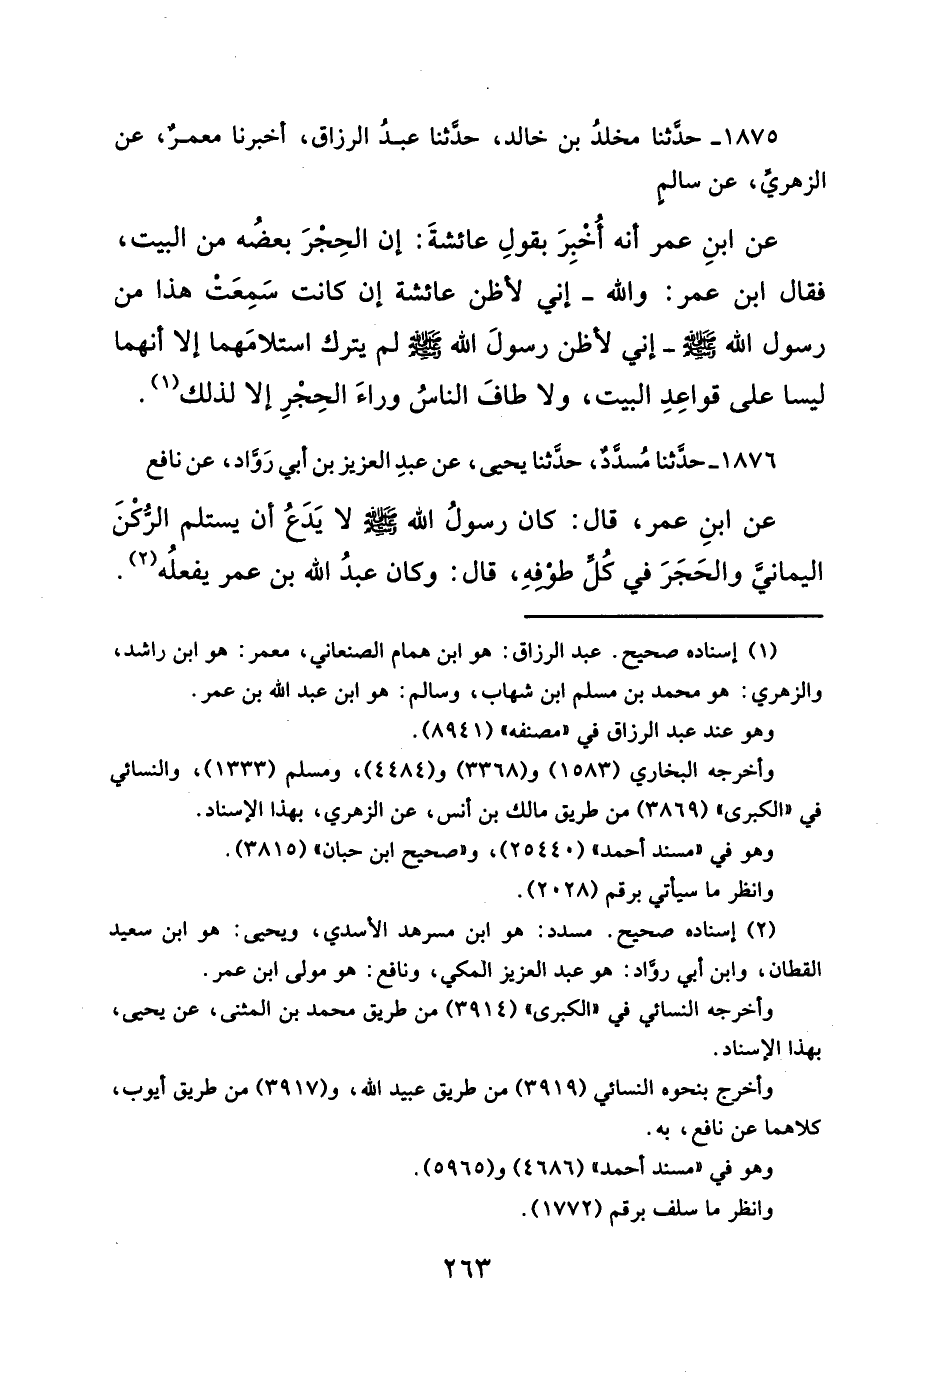 ١٨٧٥ـ حدَّثنا مخلدُ بن خالد، حدَّثنا عبدُ الرزاق، أخبرنا معمرٌ، عن
الزهريِّ، عن سالمٍ
عن ابنِ عمر أنه أُخْبِرَ بقولِ عائشةَ: إن الحِجْرَ بعضُه من البيت،
فقال ابن عمر: والله ـ إني لأظن عائشة إن كانت سَمِعَتْ هذا من
رسول الله ﷺ ـ إني لأظن رسولَ الله ﷺ لم يترك استلامَهما إلا أنهما
ليسا على قواعِدِ البيت، ولا طافَ الناسُ وراءَ الحِجْرِ إلا لذلك(١).
١٨٧٦ـ حدَّثنا مُسدَّدٌ، حدَّثنا يحيى، عن عبدِ العزيز بن أبي رَوَّاد، عن نافع
عن ابنِ عمر، قال: كان رسولُ الله ﷺ لا يَدَعُ أن يستلم الرُّكْنَ
اليمانيَّ والحَجَرَ في كُلِّ طوْفِهِ، قال: وكان عبدُ الله بن عمر يفعلُه(٢).
(١) إسناده صحيح. عبد الرزاق: هو ابن همام الصنعاني، معمر: هو ابن راشد،
والزهري: هو محمد بن مسلم ابن شهاب، وسالم: هو ابن عبد الله بن عمر.
وهو عند عبد الرزاق في «مصنفه» (٨٩٤١).
وأخرجه البخاري (١٥٨٣) و(٣٣٦٨) و(٤٤٨٤)، ومسلم (١٣٣٣)، والنسائي
في «الكبرى» (٣٨٦٩) من طريق مالك بن أنس، عن الزهري، بهذا الإسناد.
وهو في «مسند أحمد» (٢٥٤٤٠)، و«صحيح ابن حبان» (٣٨١٥).
وانظر ما سيأتي برقم (٢٠٢٨).
(٢) إسناده صحيح. مسدد: هو ابن مسرهد الأسدي، ويحيى: هو ابن سعيد
القطان، وابن أبي روَّاد: هو عبد العزيز المكي، ونافع: هو مولى ابن عمر.
وأخرجه النسائي في «الكبرى» (٣٩١٤) من طريق محمد بن المثنى، عن يحيى،
بهذا الإسناد.
وأخرج بنحوه النسائي (٣٩١٩) من طريق عبيد الله، و(٣٩١٧) من طريق أيوب،
كلاهما عن نافع، به.
وهو في «مسند أحمد» (٤٦٨٦) و(٥٩٦٥).
وانظر ما سلف برقم (١٧٧٢).
٢٦٣